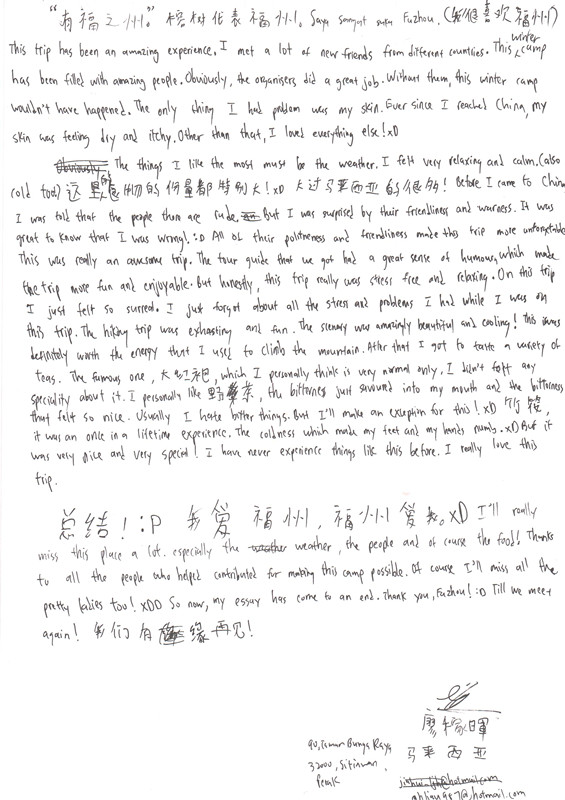 “有福之州。” 榕树代表福州。 Saya sangat suka Fuzhou. (我很喜欢福州)
This trip has been an amazing experience. I met a lot of new friends from different countries. This winter camp
has been filled with amazing people. Obviously, the organisers did a great job. Without them, this winter camp
wouldn't have happened. The only thing I had problem was my skin. Ever since I reached China, my
skin was feeling dry and itchy. Other than that, I loved everything else! xD
Obviously The things I like the most must be the weather. I felt very relaxing and calm. (also
cold too) 这里的食物的份量都特别大! xD 大过马来西亚的很多! Before I came to China
I was told that the people there are rude. But I was surprised by their friendliness and warmess. It was
great to know that I was wrong! :D All of their politeness and friendliness made this trip more unforgetable
This was really an awesome trip. The tour guide that we got had a great sense of humour, which made
the trip more fun and enjoyable. But honestly, this trip really was stress free and relaxing. On this trip
I just felt so surreal. I just forgot about all the stress and problems I had while I was on
this trip. The hiking trip was exhausting and fun. The scenery was amazingly beautiful and cooling! This was
definitely worth the energy that I used to climb the mountain. After that I got to taste a variety of
teas. The famous one, 大红袍, which I personally think is very normal only, I didn't felt any
speciality about it. I personally like 野茶, the bitterness just into my mouth and the bitterness
that felt so nice. Usually I hate bitter things. But I'll make an exception for this! xD 竹筏,
it was an once in a lifetime experience. The coldness which made my feet and my hands numb. xD But it
was very nice and very special! I have never experience things like this before. I really love this
trip.
总结! :P 我爱福州, 福州爱我。xD I'll really
miss this place a lot. especially the weather, the people and of course the food! Thanks
to all the people who helped contributed for making this camp possible. Of course I'll miss all the
pretty ladies too! xDD So now, my essay has come to an end. Thank you, Fuzhou! :D Till we meet
again! 我们有缘再见!
马来西亚
90, Taman Bunga Raya,
32000, Sitiawan,
Perak